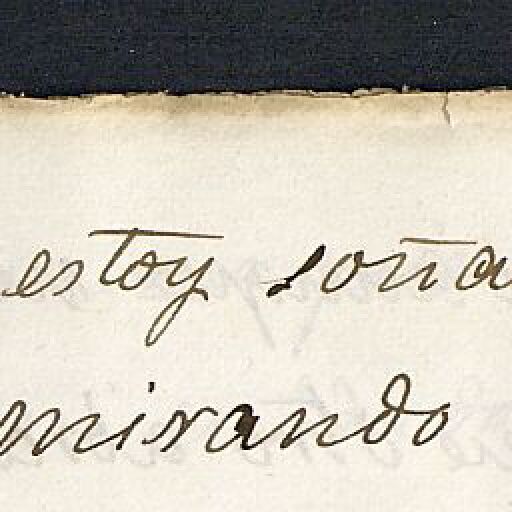 estoy soña
mirando